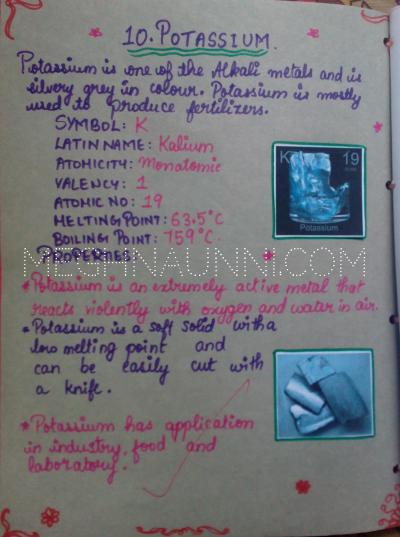 10. POTASSIUM.
Potassium is one of the Alkali metals and is
silvery grey in colour. Potassium is mostly
used to produce fertilizers.
SYMBOL: K
LATIN NAME: Kalium
ATOMICITY: Monatomic
VALENCY: 1
ATOMIC NO: 19
MELTING POINT: 63.5°C
BOILING POINT: 759°C
PROPERTIES:
K 19
Potassium
MESHINAUNNI.COM
* Potassium is an extremely active metal that
reacts violently with oxygen and water in air.
* Potassium is a soft solid with a
low melting point and
can be easily cut with
a knife.
* Potassium has application
in industry, food and
laboratory.